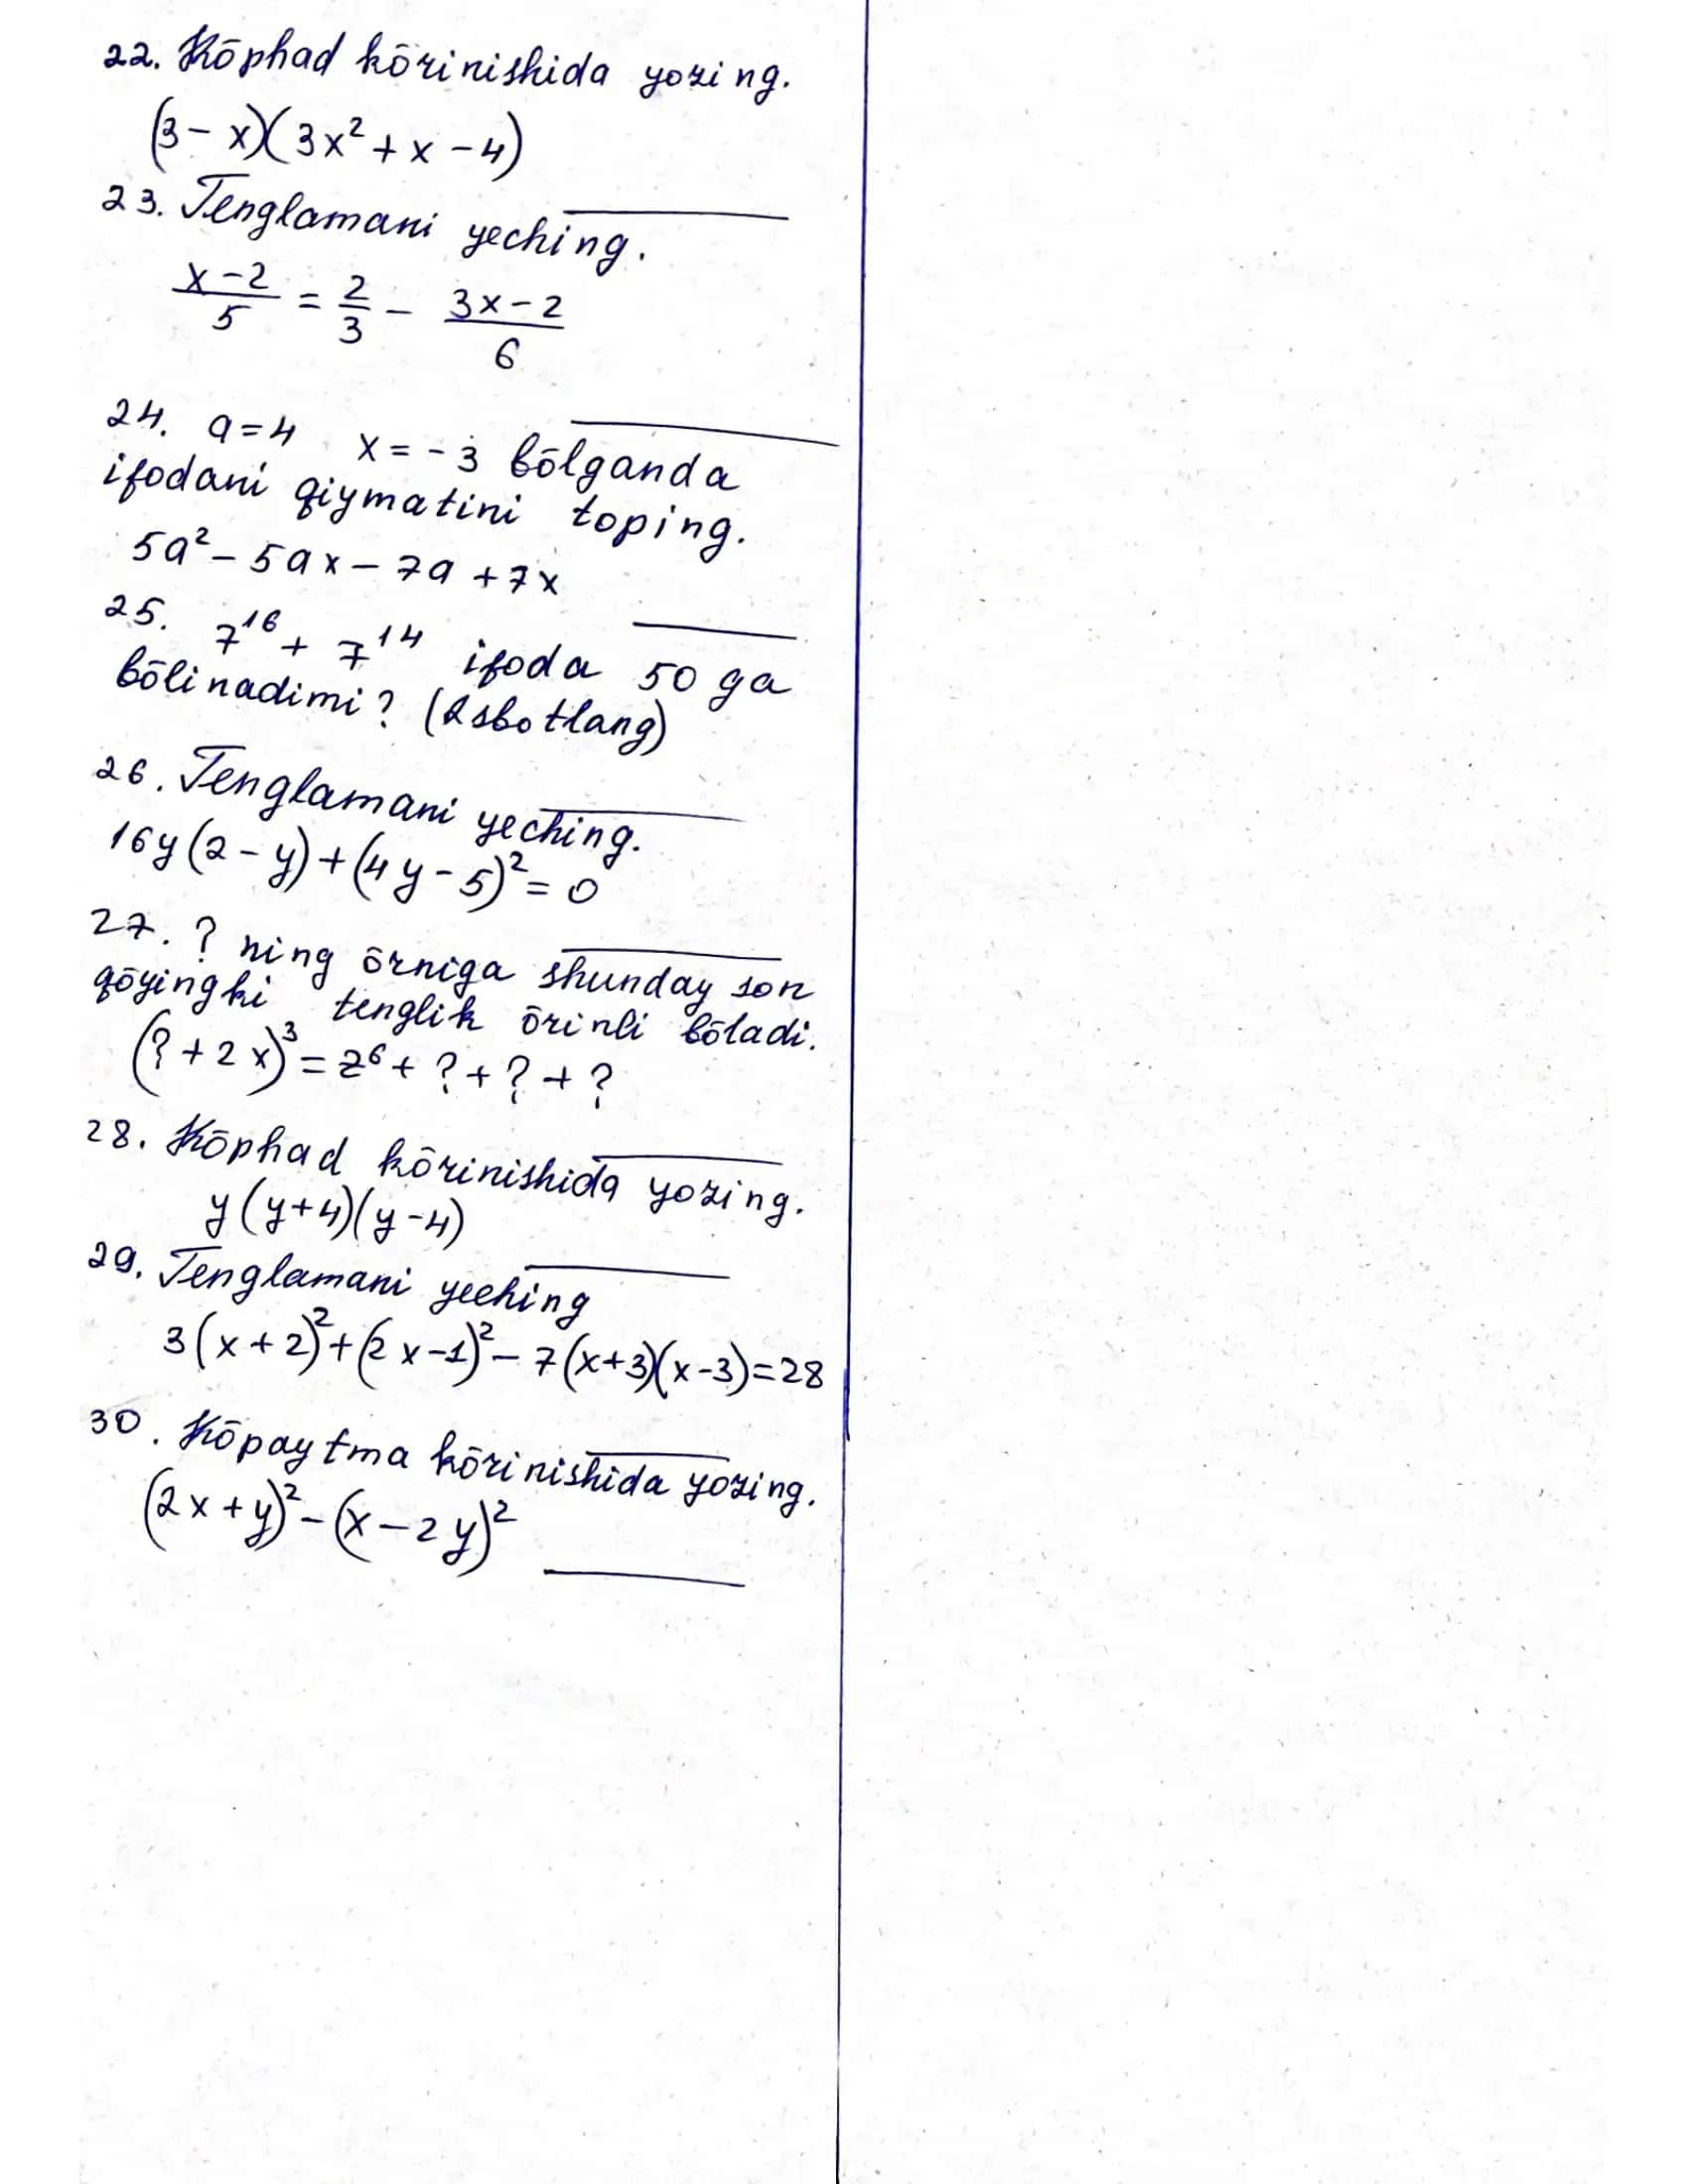 22. Kōphad kōrinishida yozing.
(3 - x)(3x² + x - 4)
23. Tenglamani yeching.
x-2/5 = 2/3 - 3x-2/6
24. a=4 x=-3 bōlganda
ifodani qiymatini toping.
5a² - 5ax - 7a + 7x
25. 7¹⁶ + 7¹⁴ ifoda 50 ga
bōlinadimi? (Isbotlang)
26. Tenglamani yeching.
16y(2-y)+(4y-5)²=0
27. ? ning ōrniga shunday son
qōyingki tenglik ōrinli bōladi.
(?+2x)³=z⁶+?+?+?
28. Kōphad kōrinishida yozing.
y(y+4)(y-4)
29. Tenglamani yeching
3(x+2)²+(2x-1)²-7(x+3)(x-3)=28
30. Kōpaytma kōrinishida yozing.
(2x+y)²-(x-2y)²